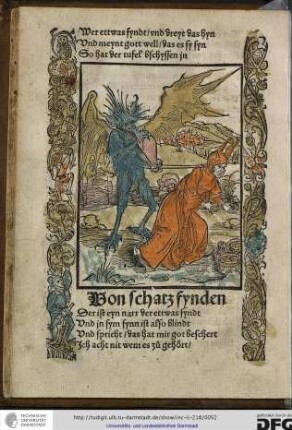 Wer ettwas fyndt / vnd dreyt das hyn
Vnd meynt gott well / das es sy syn
So hat der tüfel bschyssen in
Von schatz fynden
Der ist eyn narr der ettwas fyndt
Vnd in sym synn ist also blindt
Vnd spricht / das hat mir got beschert
Ich acht nit wem es zů gehört /
http://tudigit.ulb.tu-darmstadt.de/show/inc-ii-218/0092
Universitäts- und Landesbibliothek Darmstadt
TECHNISCHE UNIVERSITÄT DARMSTADT
DFG